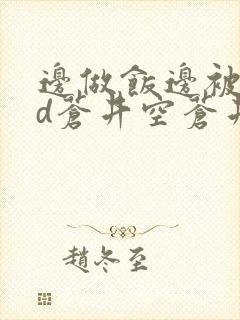 邊做飯邊被
d蒼井空蒼井
趙冬至